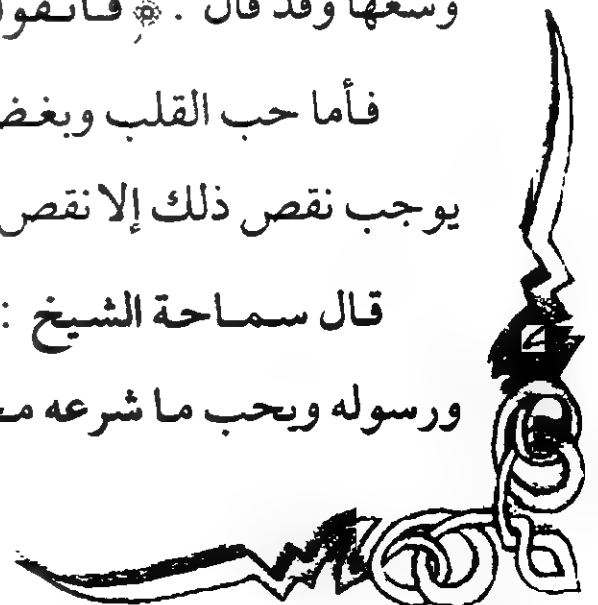 وسعها وقد قال : ﴿ فاتقوا
فأما حب القلب وبغض
يوجب نقص ذلك إلا نقص
قال سماحة الشيخ :
ورسوله ويحب ما شرعه